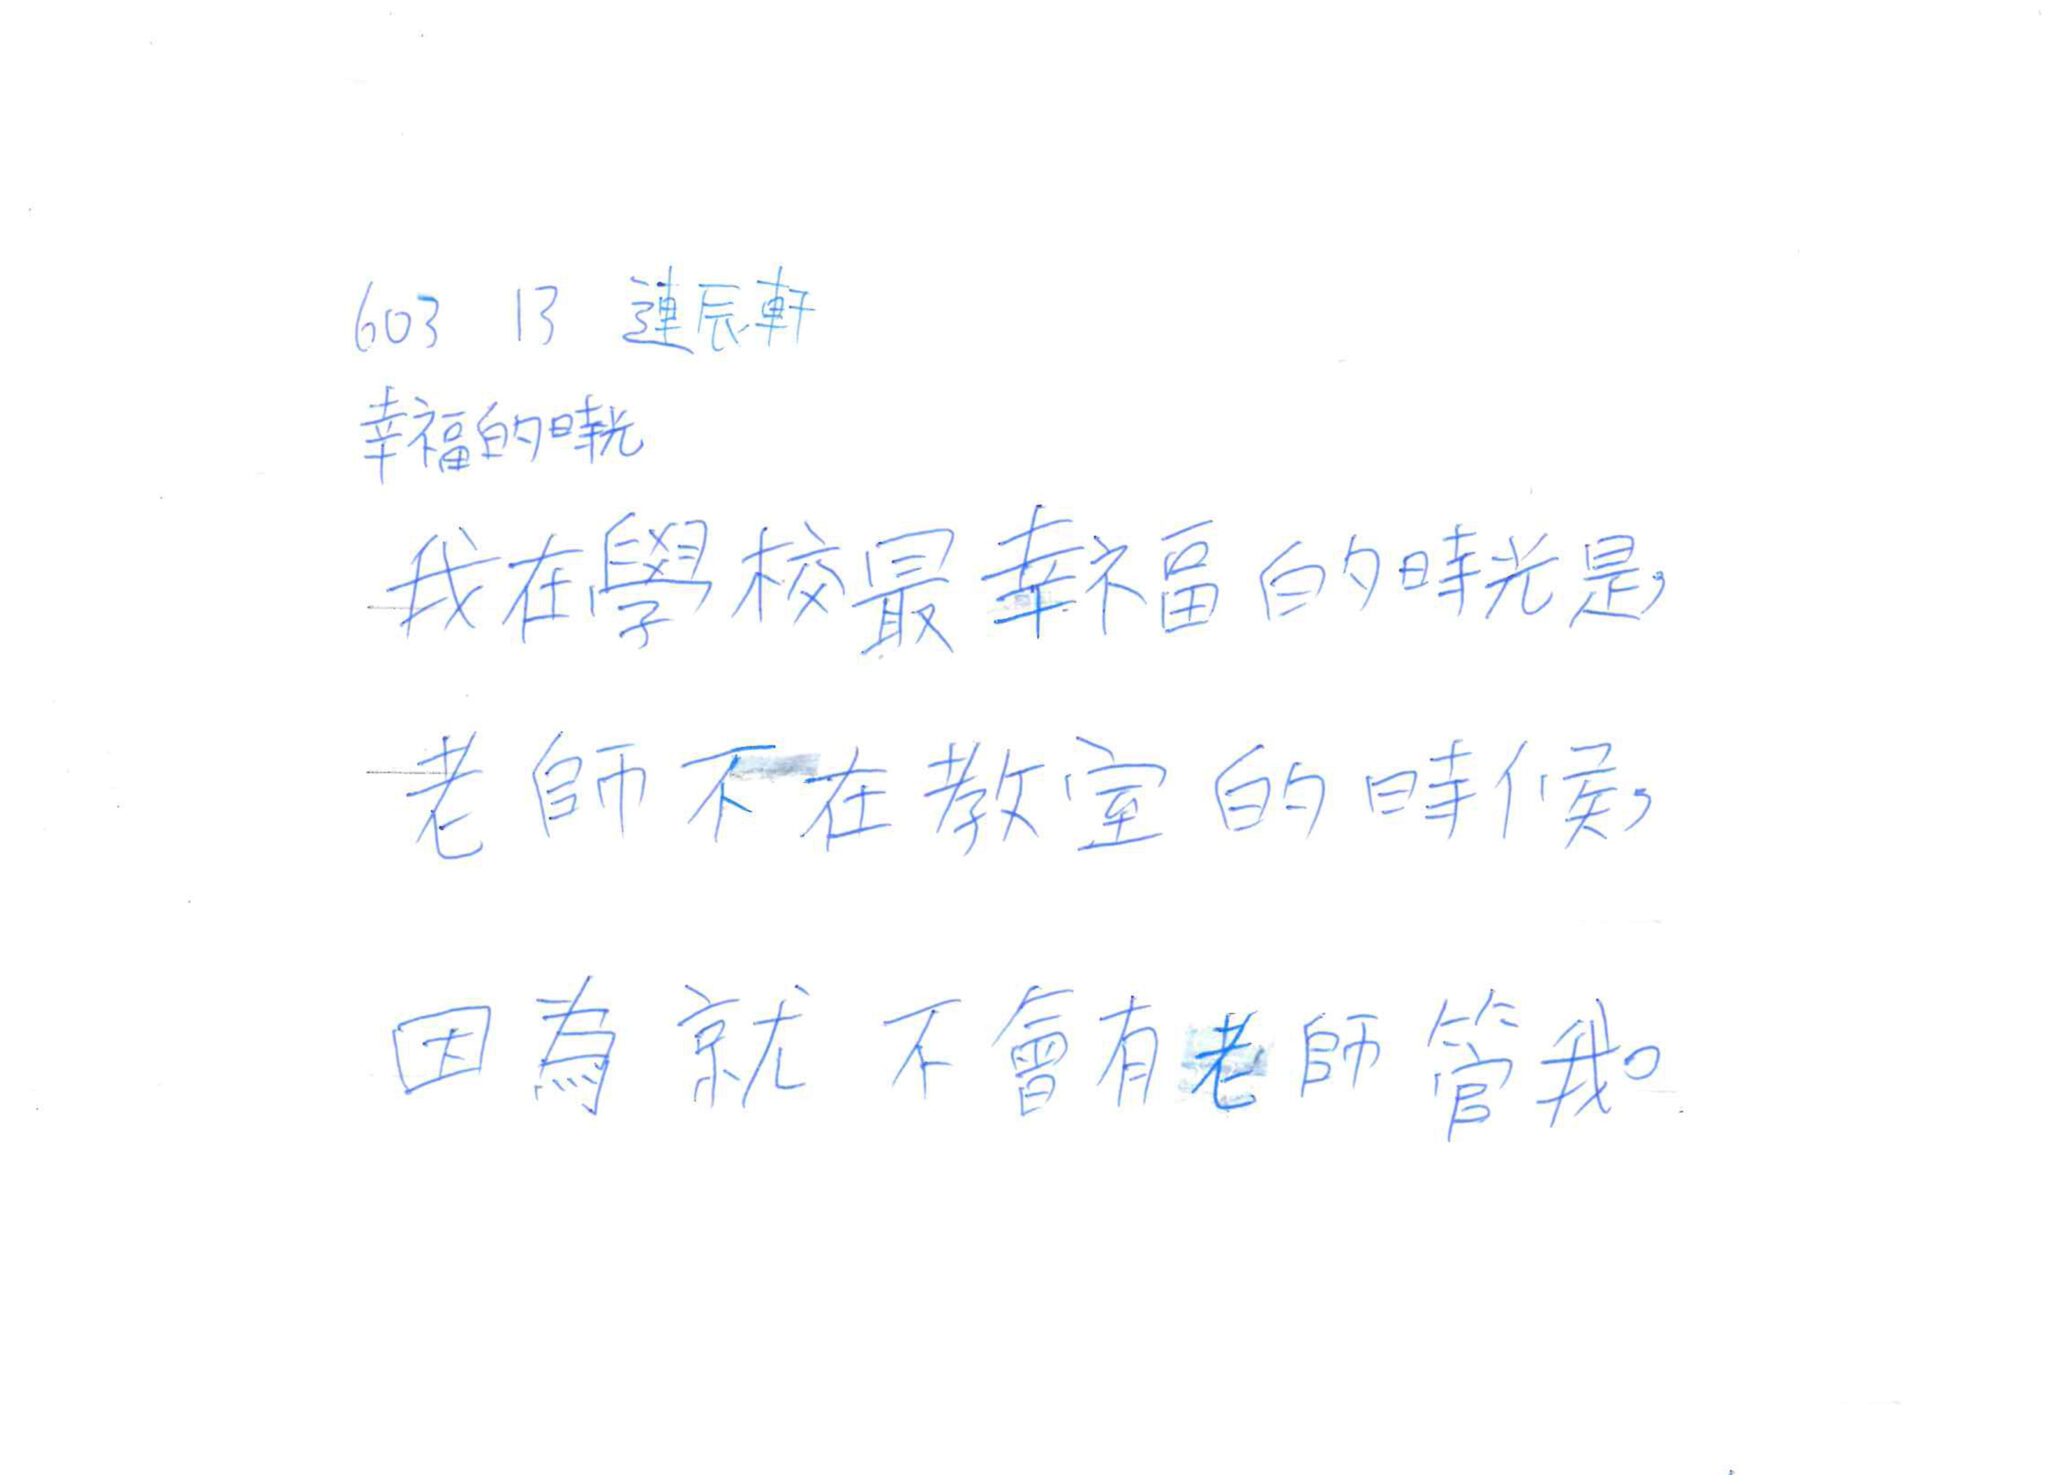 603 13 連辰軒
幸福的時光
我在學校最幸福的時光是,
老師不在教室的時候,
因為就不會有老師管我。